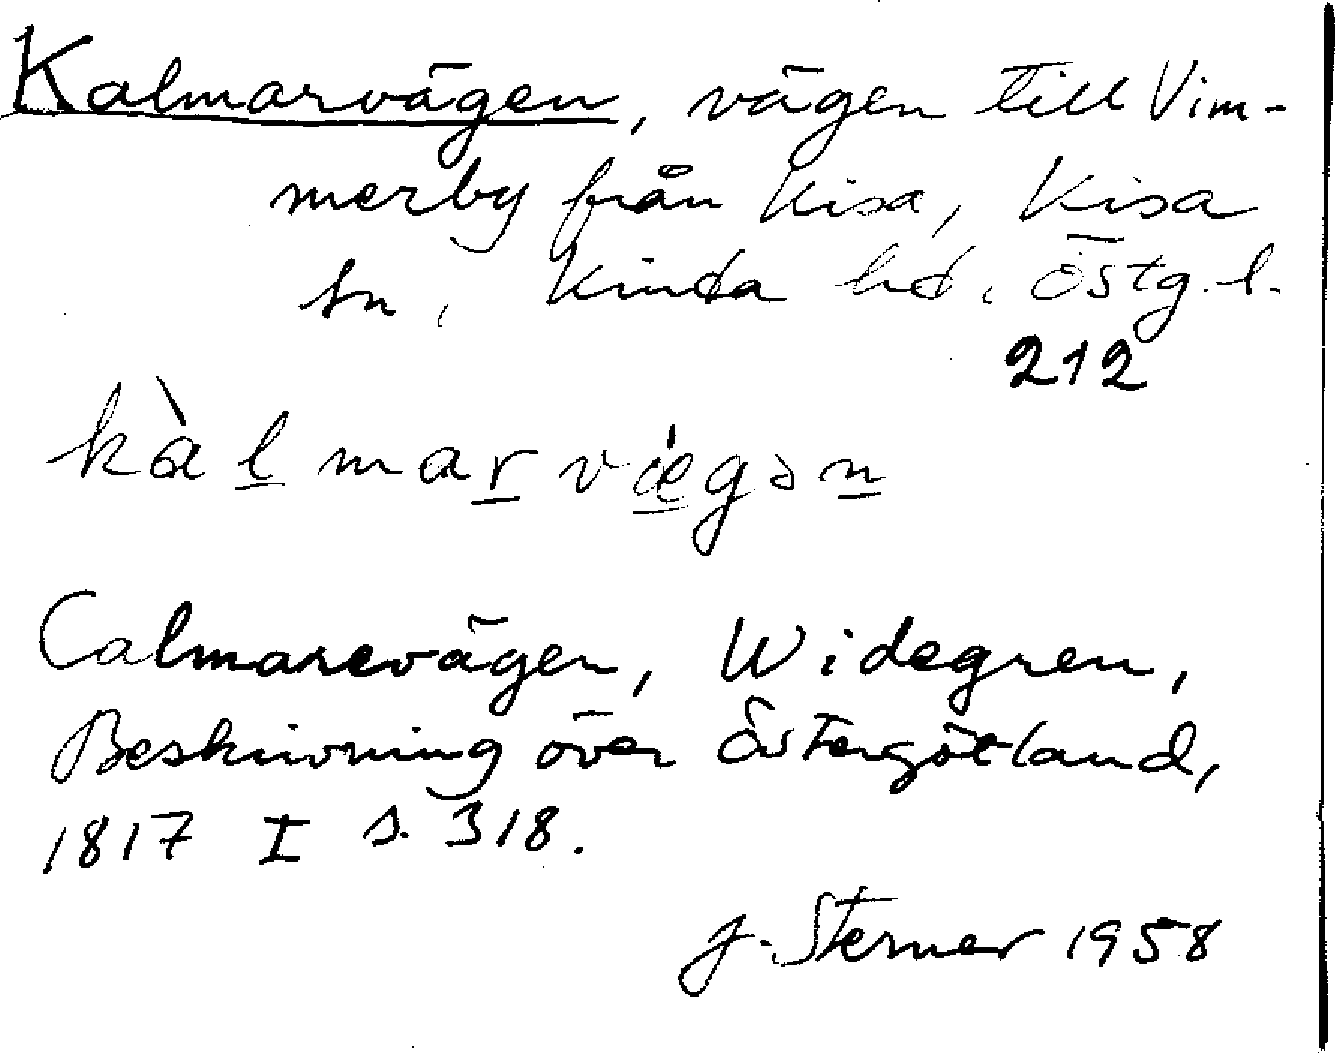 Kalmarvägen, vägen till Vim-
merby från Kisa, Kisa
sn, Kinda hd, Östg.l.
212
kàlmarvǽgən
Calmarevägen, Widegren,
Beskrivning över Östergötland,
1817 I s. 318.
J. Sterner 1958